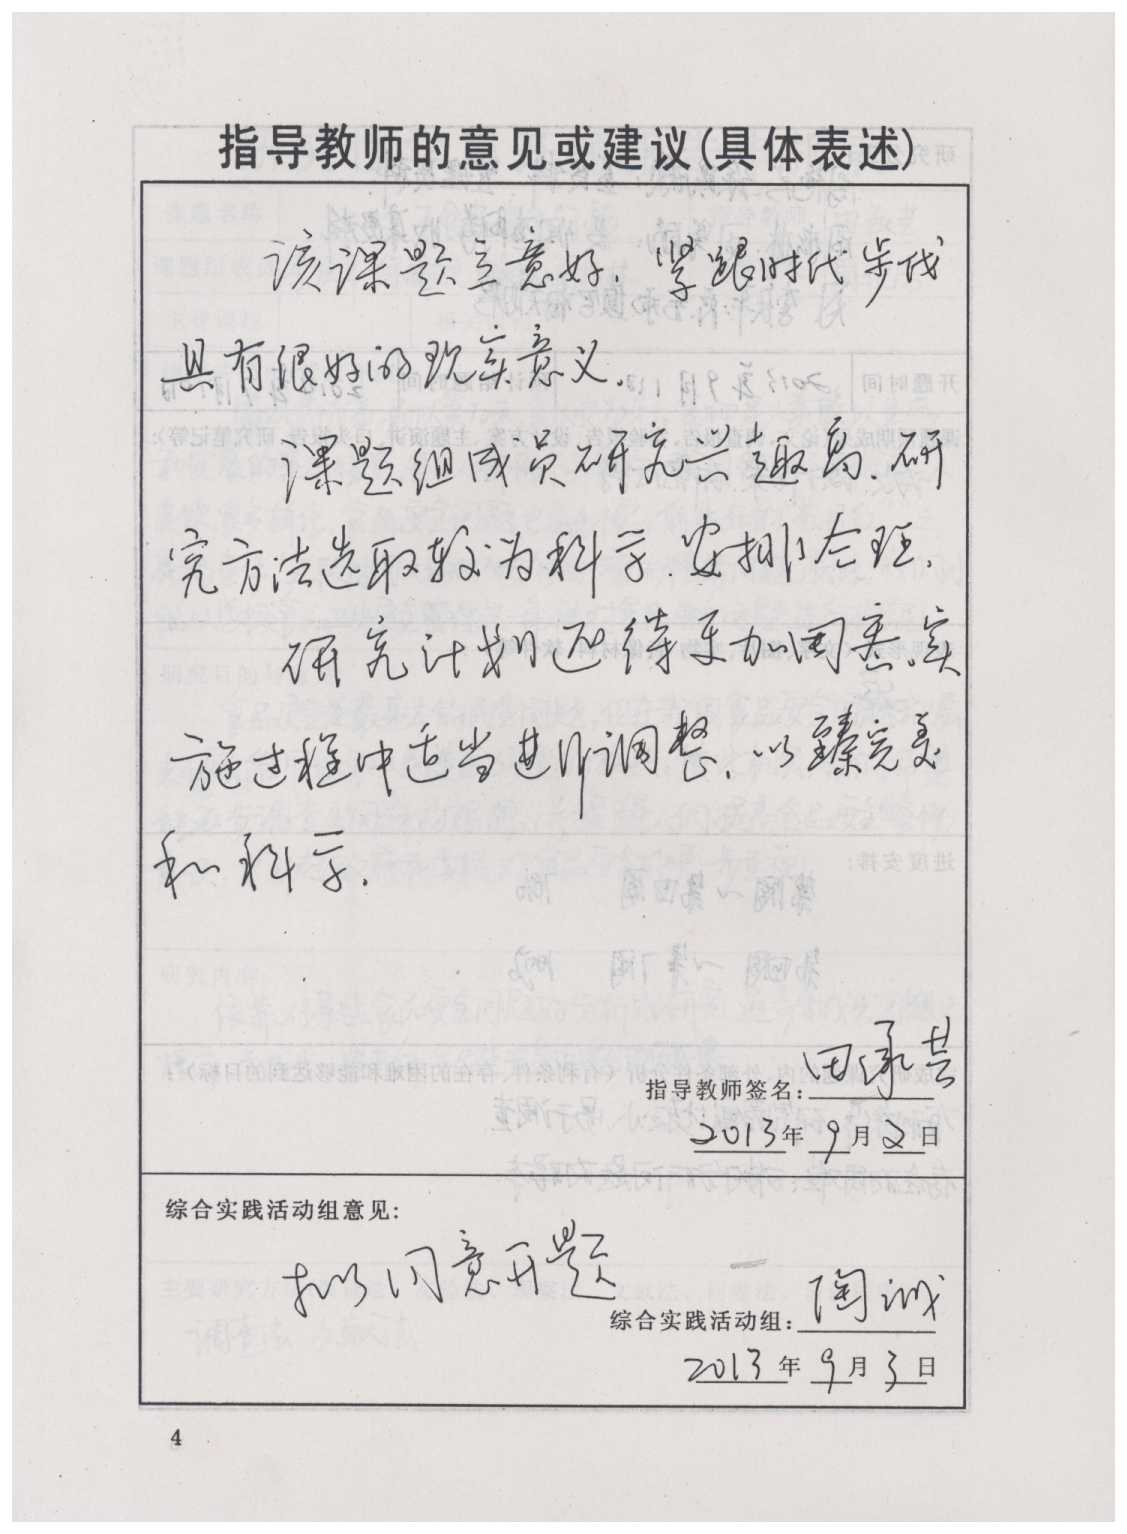 指导教师的意见或建议(具体表述)
该课题立意好.紧跟时代步伐
具有很好的现实意义.
课题组成员研究兴趣高.研
究方法选取较为科学.安排合理.
研究计划还待更加周密.实
施过程中适当进行调整.以臻完美
和科学.
指导教师签名:田承芸
2013年9月2日
综合实践活动组意见:
拟同意开题
综合实践活动组:陶诚
2013年9月3日
4